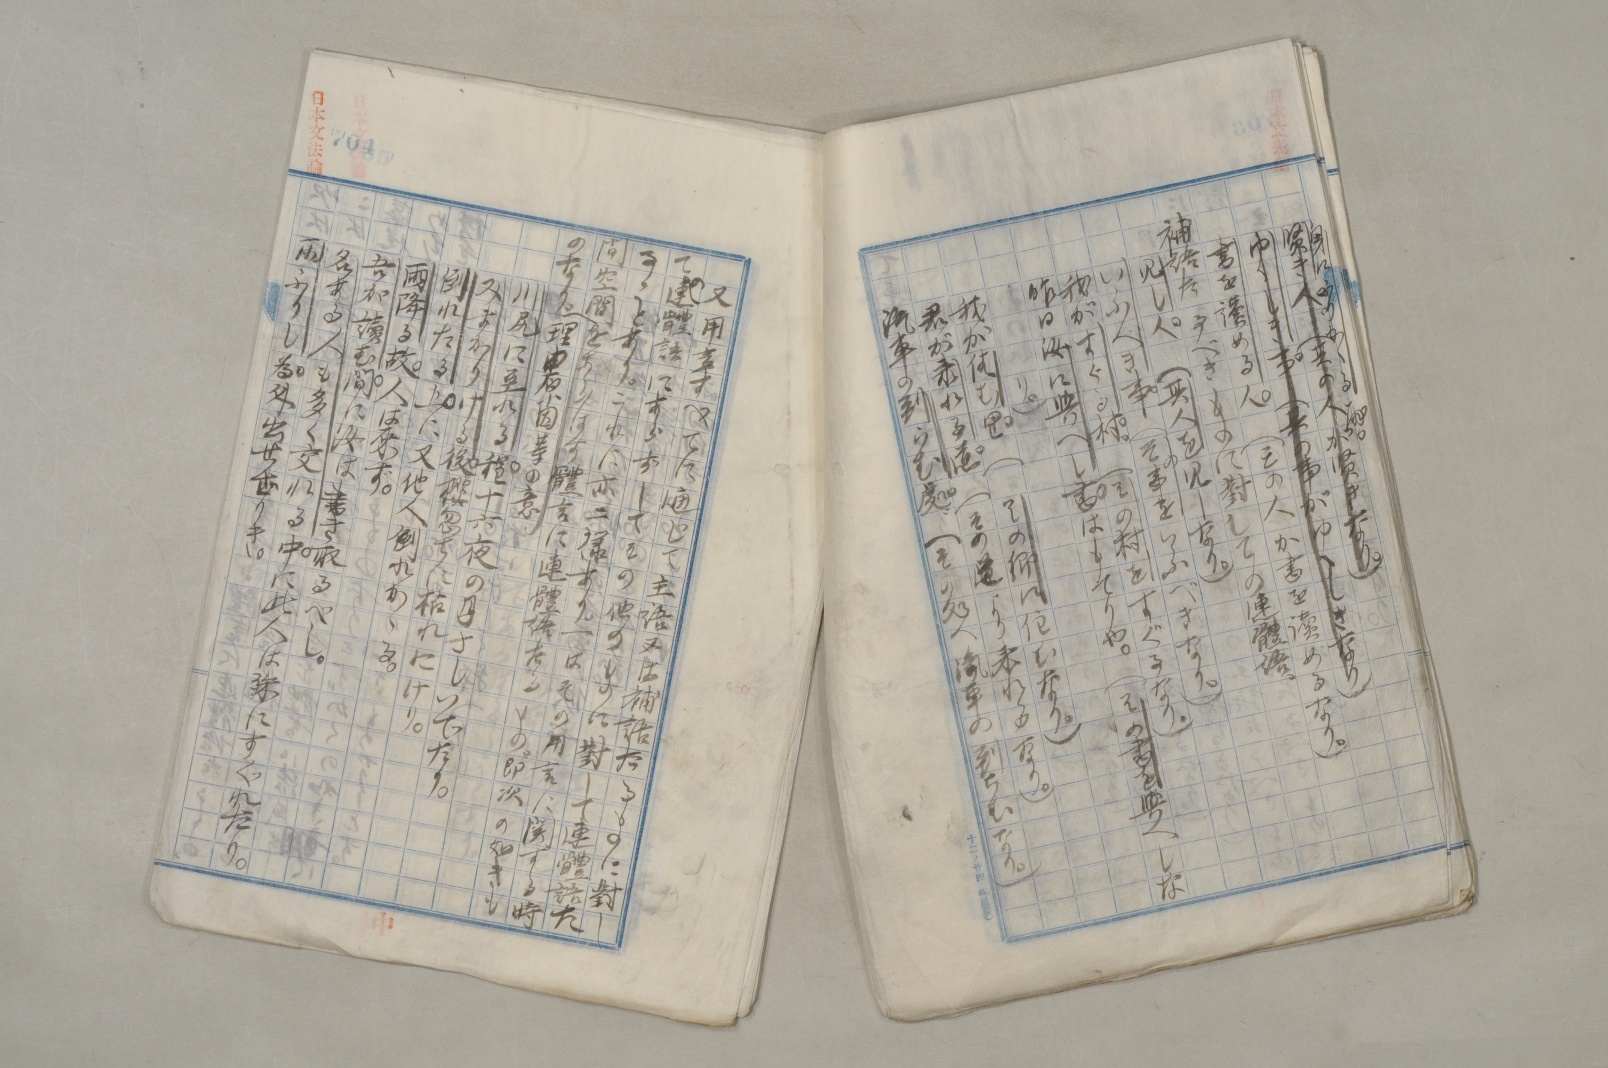 賢き人(其の人が賢きなり。)
ゆゝしき事(其の事がゆゝしきなり)
書を讀める人。(その人が書を讀めるなり。)
補語たるべきものに對しての連體語、
見し人。(其人を見しなり。)
いふべき事(その事をいふべきなり。)
我がすぐる村。(その村をすぐるなり。)
昨日汝に與へし書はもてりや。(その書を與へしな
り。)
我が住む郷。(その郷に住むなり。)
君が來れる道。(その道より來れるなり。)
汽車の到らむ處。(その処へ汽車の到らむなり。)
日本文法論
704
又用言すべてに通じて主語又は補語たるものに對し
て連體語にあらずしてその他のものに對して連體語た
ることあり。これに亦二樣あり一はその用言に関する時
間空間をあらはす體言に連體語たるもの、即次の如きも
のなり
理由原因等の意
川尻に至れる程十六夜の月さしいでたり。
みまかりける後櫻忽ちに枯れにけり。
倒れたる上に又他人倒れかゝる。
雨降る故。人は來ず。
吾が讀む間に汝は書き取るべし。
名ある人も多く交れる中に此人は殊にすぐれたり。
雨ふりし為外出せざりき。
中